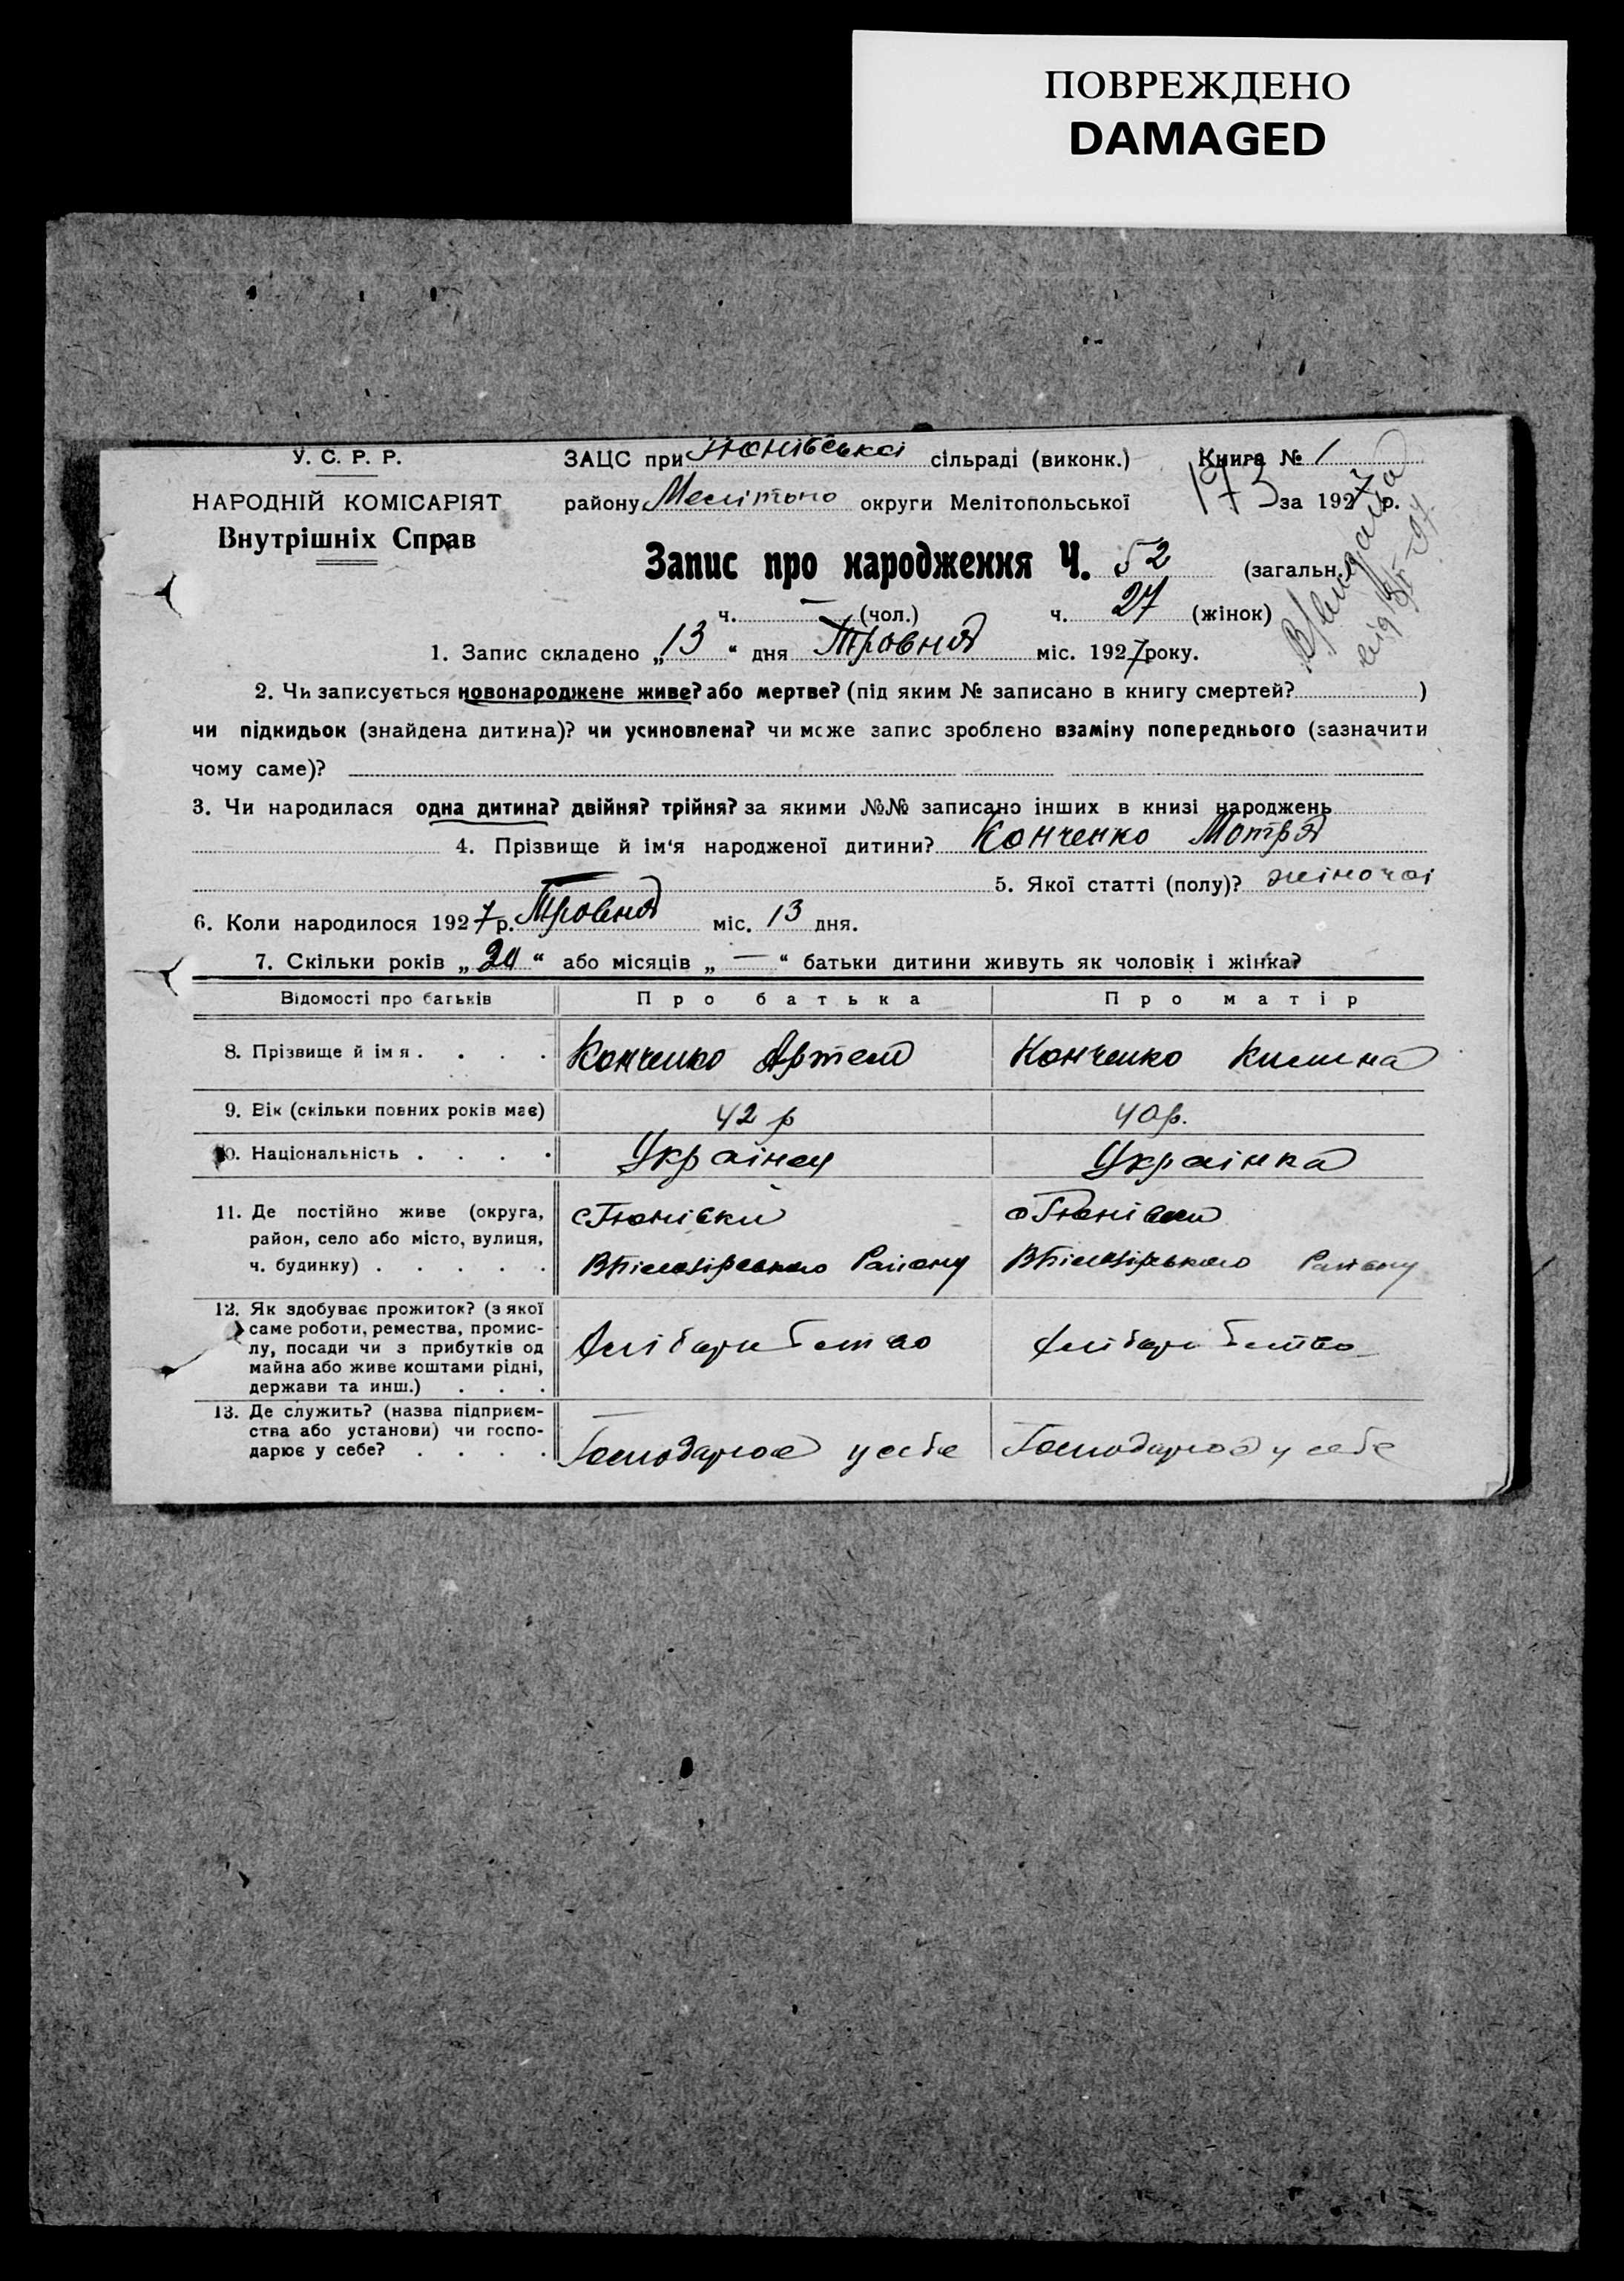 ПОВРЕЖДЕНО
DAMAGED
У. С. Р. Р.
НАРОДНІЙ КОМІСАРІЯТ
Внутрішніх Справ
ЗАЦС при Тюнівські сільраді (виконк.) Книга № 1
району Мелітопо округи Мелітопольської 173 за 1927 р.
Запис про народження Ч. 52 (загальн.)
ч. — (чол.) ч. 27 (жінок)
1. Запис складено „13“ дня Травня міс. 1927 року.
2. Чи записується новонароджене живе? або мертве? (під яким № записано в книгу смертей? )
чи підкидьок (знайдена дитина)? чи усиновлена? чи може запис зроблено взаміну попереднього (зазначити
чому саме)?
3. Чи народилася одна дитина? двійня? трійня? за якими №№ записано інших в книзі народжень
4. Прізвище й ім'я народженої дитини? Конченко Мотря
5. Якої статті (полу)? жіночоі
6. Коли народилося 1927 р. Травня міс. 13 дня.
7. Скільки років „20“ або місяців „—“ батьки дитини живуть як чоловік і жінка?
Відомості про батьків Про батька Про матір
8. Прізвище й імя . . . . Конченко Артем Конченко Килина
9. Вік (скільки повних років має) 42 р 40 р.
10. Національність . . . . Украінец Украінка
11. Де постійно живе (округа, с Тюнівки с Тюнівки
район, село або місто, вулиця,
ч. будинку) . . . . . ВБілозірського Району ВБілозірського Району
12. Як здобуває прожиток? (з якої
саме роботи, ремества, промис-
лу, посади чи з прибутків од Хлібаробство Хлібаробство
майна або живе коштами рідні,
держави та инш.) . . .
13. Де служить? (назва підприєм-
ства або установи) чи госпо-
дарює у себе? . . . . Господарює у себе Господарює у себе